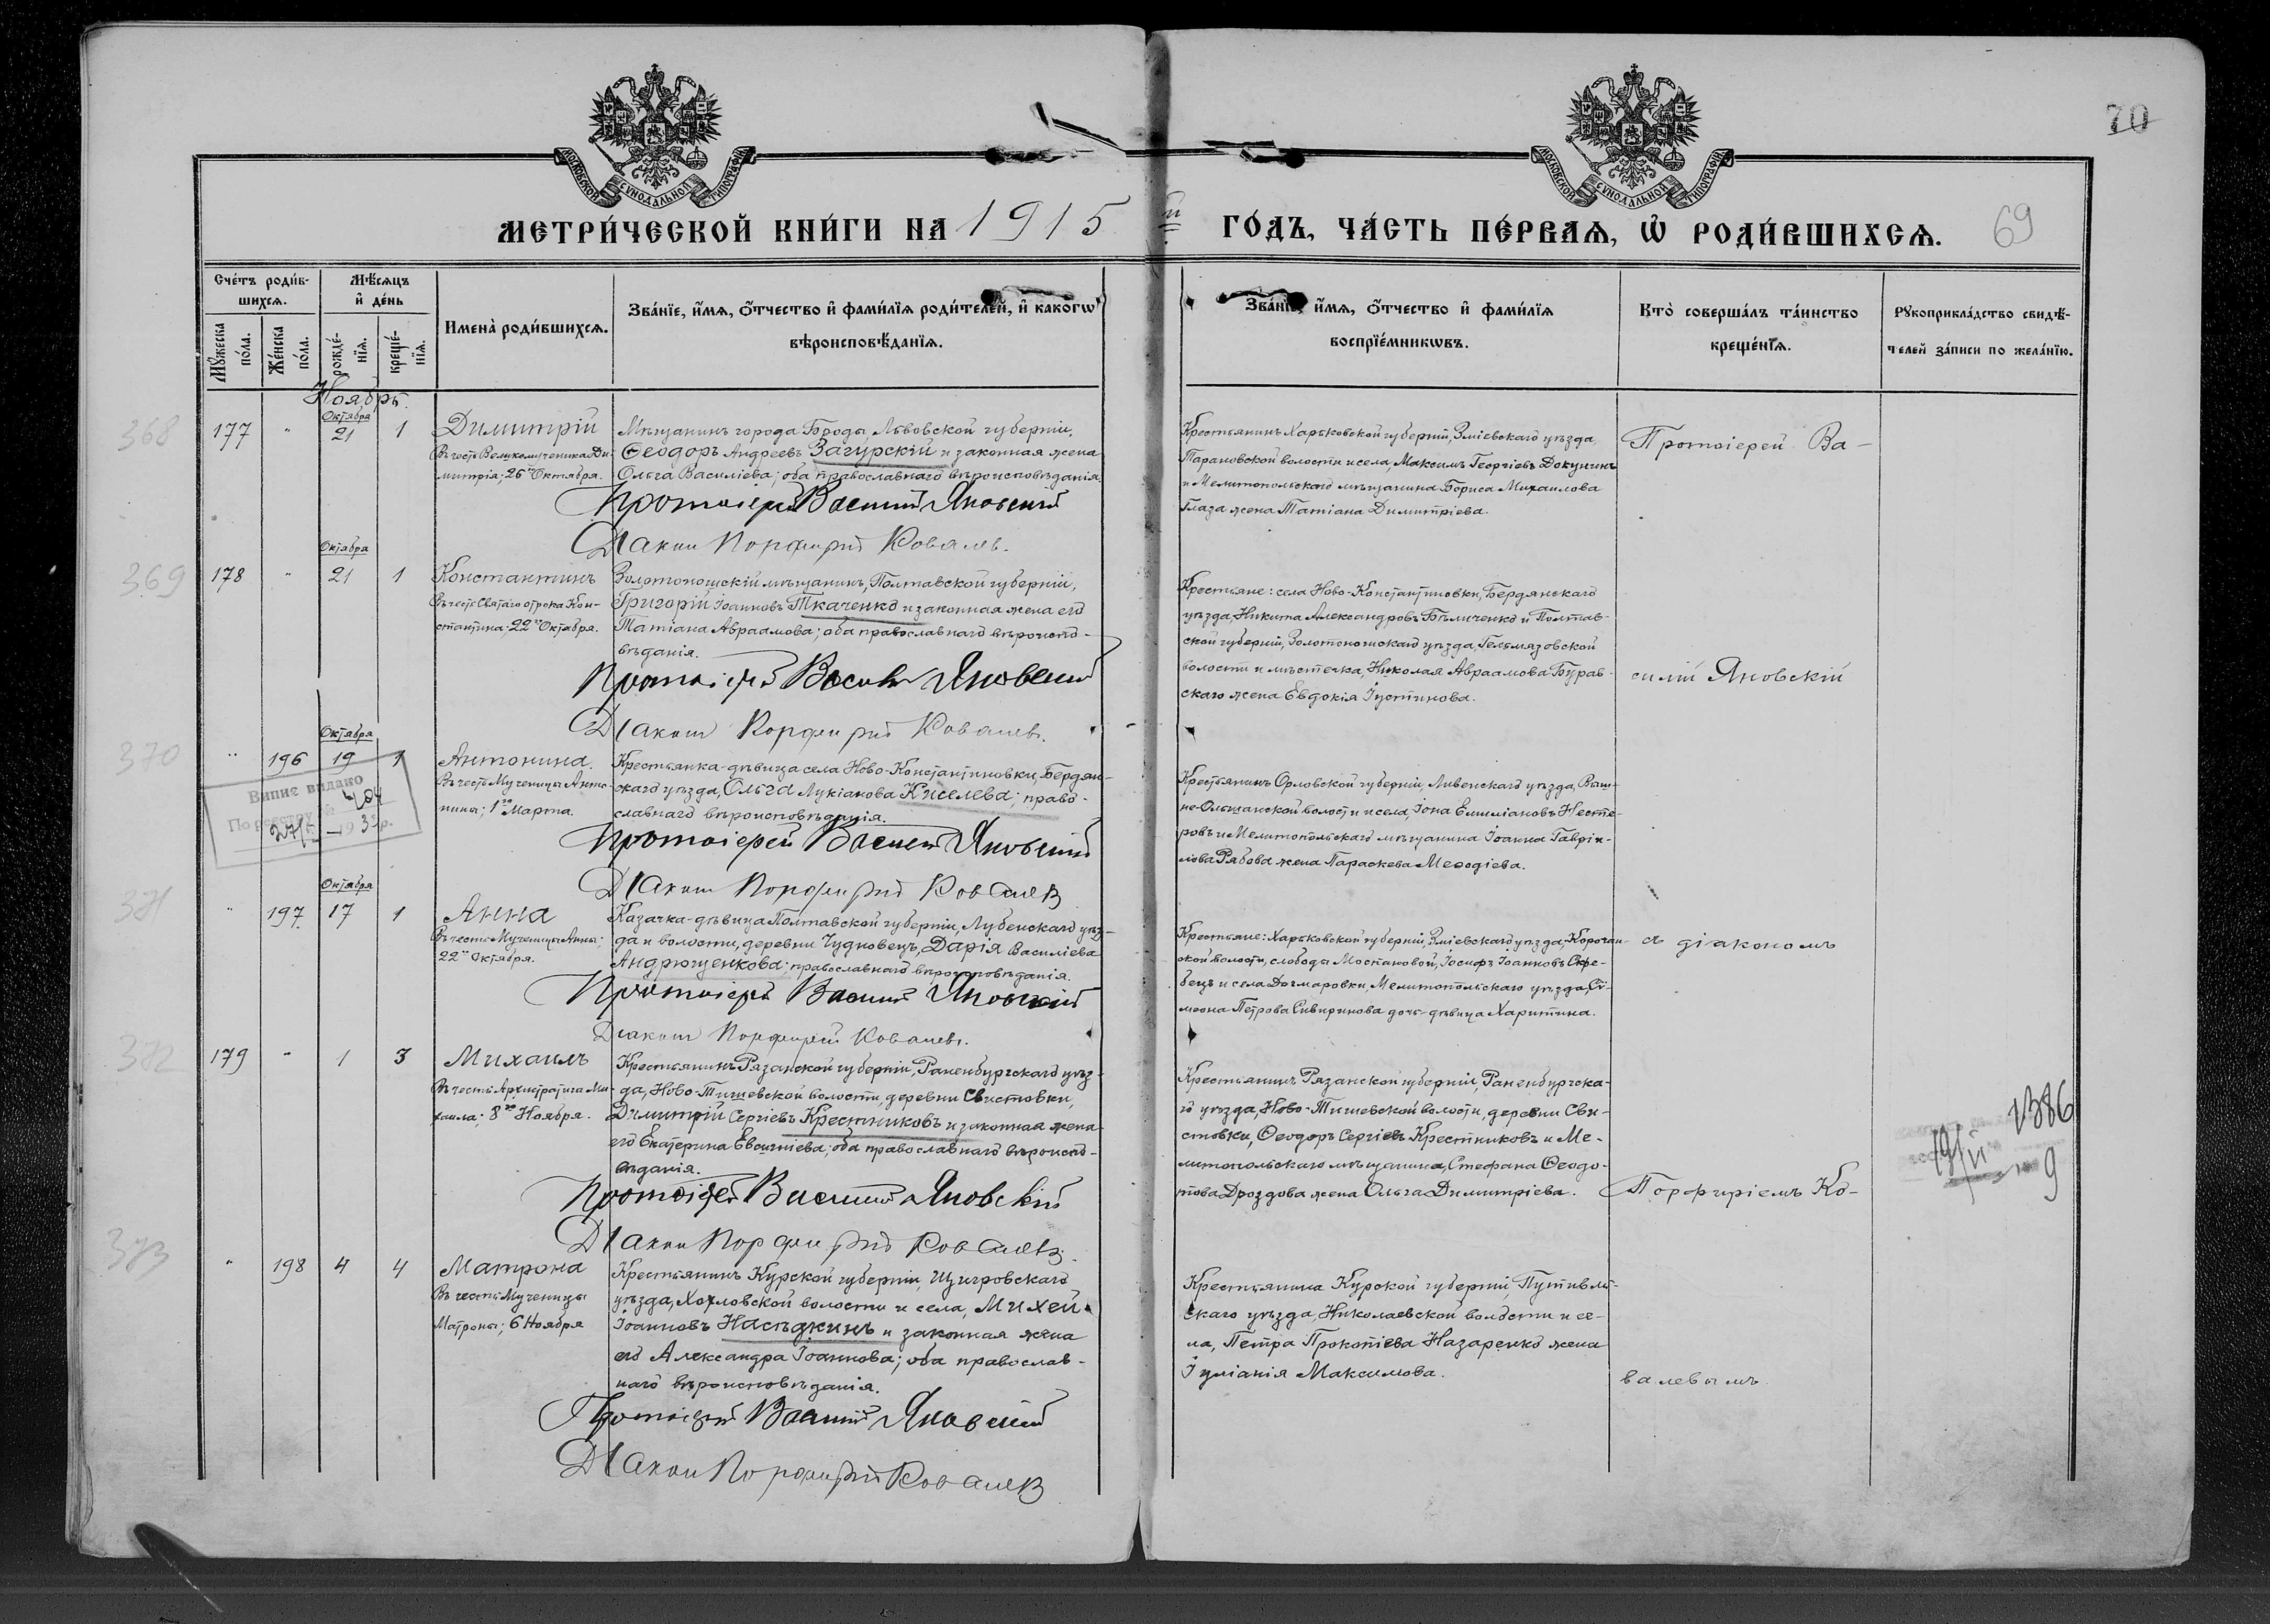 70
МОСКОВСКОЙ СѴНОДАЛЬНОЙ ТИПОГРАФІИ
МОСКОВСКОЙ СѴНОДАЛЬНОЙ ТИПОГРАФІИ
МЕТРИ́ЧЕСКОЙ КНИ́ГИ НА 1915 ый ГО́ДЪ, ЧА́СТЬ ПЕ́РВАѦ, Ѡ҆ РОДИ́ВШИХСѦ. 69
Сче́тъ роди́в-
шихсѧ.
Мꙋ́жеска по́ла.
Же́нска по́ла.
Мѣ́сѧцъ и҆ де́нь
рожде́-нїѧ.
креще́-нїѧ.
Имена̀ роди́вшихсѧ.
Зва́нїе, и҆́мѧ, ѻ҆́тчество и҆ фами́лїѧ роди́телей, и҆ какогѡ
вѣроисповѣ́данїѧ.
Зва́нїе, и҆́мѧ, ѻ҆́тчество и҆ фами́лїѧ
воспрїе́мникѡвъ.
Кто̀ соверша́лъ та́инство
креще́нїѧ.
Рꙋкоприкла́дство свидѣ́-
телей за́писи по жела́нїю.
Ноябрь.
368
177 " Октября 21 1
Димитрій
Въ честь Великомученика Ди-
митрія; 26го Октября.
Мѣщанинъ города Броды, Львовской губерніи,
Ѳеодоръ Андреевъ Загурскій и законная жена
Ольга Василіева; оба православнаго вѣроисповѣданія.
Протоіерей Василій Яновскій
Діакон Порфирій Ковалев.
Крестьянинъ Харьковской губерніи, Зміевскаго уѣзда,
Тарановской волости и села, Максимъ Георгіевъ Докучинъ
и Мелитопольскаго мѣщанина Бориса Михаилова
Глаза жена Татіана Димитріева.
Протоіерей Ва-
369
178 " Октября 21 1
Константинъ
Въ честь Святаго отрока Кон-
стантина; 22го Октября.
Золотоношскій мѣщанинъ, Полтавской губерніи,
Григорій Іоанновъ Ткаченко и законная жена его
Татіана Авраамова; оба православнаго вѣроиспо-
вѣданія.
Протоіерей Василій Яновскій
Діакон Порфирій Ковалев.
Крестьяне: села Ново-Константиновки, Бердянскаго
уѣзда, Никита Александровъ Бѣличенко и Полтав-
ской губерніи, Золотоношскаго уѣзда, Гельмязовской
волости и мѣстечка, Николая Авраамова Бурав-
скаго жена Евдокія Іустинова.
силій Яновскій
370
" 196 Октября 19 1
Випис видано
По реєстру №
404
27/
193 р.
Антонина.
Въ честь Мученицы Анто-
нины; 1го Марта.
Крестьянка-дѣвица села Ново-Константиновки, Бердян-
скаго уѣзда, Ольга Лукіанова Киселева; право-
славнаго вѣроисповѣданія.
Протоіерей Василій Яновскій
Діакон Порфирій Ковалев
Крестьянинъ Орловской губерніи, Ливенскаго уѣзда,
не-Ольшанской волости и села, Іона Емиліановъ Несте-
ровъ и Мелитопольскаго мѣщанина Іоанна Гаврі-
лова Рябова жена Параскева Меѳодіева.
371
" 197. Октября 17 1
Анна
Въ честь Мученицы Анны;
22го Октября.
Казачка-дѣвица Полтавской губерніи, Лубенскаго уѣз-
да и волости, деревни Чудновецъ, Дарія Василіева
Андрющенкова; православнаго вѣроисповѣданія.
Протоіерей Василій Яновскій
Діакон Порфирій Ковалев.
Крестьяне: Харьковской губерніи, Зміевскаго уѣзда,
ской волости, слободы Мостановой, Іосифъ Іоанновъ Скре-
бецъ и села Догмаровки, Мелитопольскаго уѣзда, Сі-
меона Петрова Сивиринова дочь-дѣвица Харитина.
съ діакономъ
372
179 " 1 3
Михаилъ
Въ честь Архистратига Ми-
хаила; 8го Ноября.
Крестьянинъ Рязанской губерніи, Раненбургскаго уѣз-
да, Ново-Тишевской волости, деревни Свистовки,
Димитрій Сергіевъ Крестниковъ и законная жена
его Екатерина Евсигніева; оба православнаго вѣроиспо-
вѣданія.
Протоіерей Василій Яновскій
Діакон Порфирій Ковалев.
Крестьянинъ Рязанской губерніи, Раненбургска-
го уѣзда, Ново-Тишевской волости, деревни Сви-
стовки, Ѳеодоръ Сергіевъ Крестниковъ и Ме-
литопольскаго мѣщанина, Стефана Ѳеодо-
това Дроздова жена Ольга Димитріева.
Порфиріемъ Ко-
1386
19/VI
9
373
" 198 4 4
Матрона
Въ честь Мученицы
Матроны; 6 Ноября
Крестьянинъ Курской губерніи, Щигровскаго
уѣзда, Хохловской волости и села, Михей
Іоанновъ Насѣдкинъ и законная жена
его Александра Іоаннова; оба православ-
наго вѣроисповѣданія.
Протоіерей Василій Яновскій
Діакон Порфирій Ковалев
Крестьянина Курской губерніи, Путивль-
скаго уѣзда, Николаевской волости и се-
ла, Петра Прокопіева Назаренко жена
Іуліанія Максимова.
валевымъ.